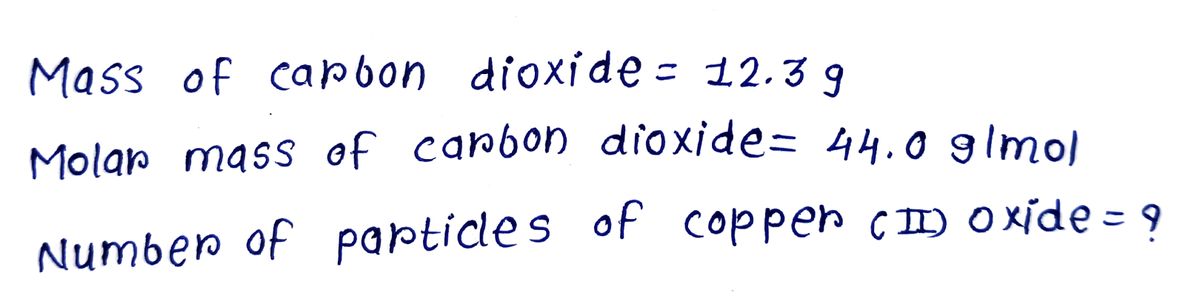 Mass of carbon dioxide = 12.3 g
Molar mass of carbon dioxide = 44.0 g/mol
Number of particles of copper (II) oxide = ?